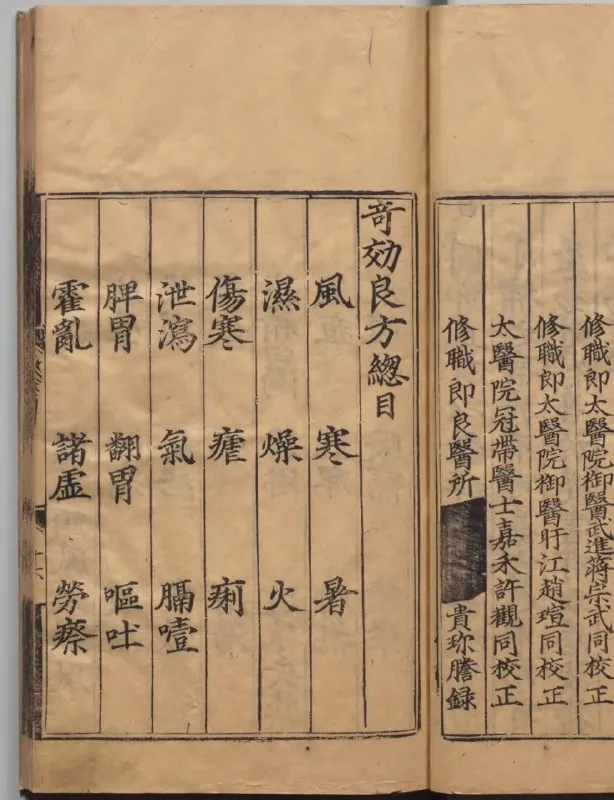 修職郎太醫院御醫武進蔣宗武同校正
修職郎太醫院御醫盱江趙瑄同校正
太醫院冠帶醫士嘉禾許觀同校正
修職郎良醫所 貴珎謄録
竒効良方總目
風 寒 暑
濕 燥 火
傷寒 瘧 痢
泄瀉 氣 膈噎
脾胃 翻胃 嘔吐
霍亂 諸虛 勞瘵